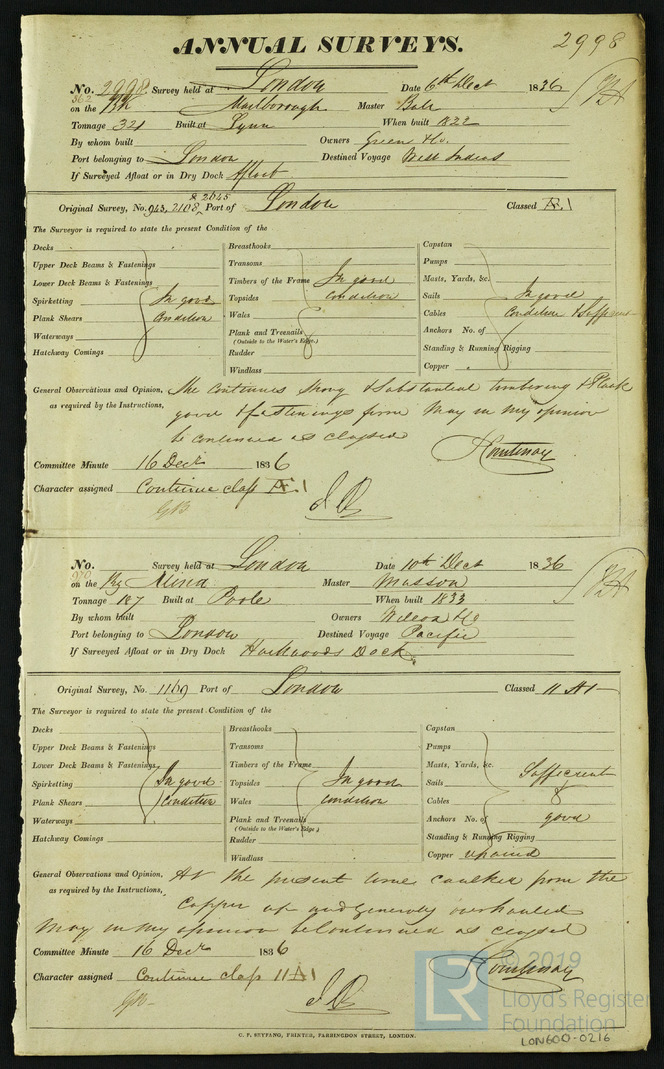 ANNUAL SURVEYS.
2998
No. 2998 Survey held at London Date 6th Dect 1836
362
on the Bk Marlborough Master
Tonnage 321 Built at Lynn When built 1822
By whom built Owners Green & Co.
Port belonging to London Destined Voyage West Indies
If Surveyed Afloat or in Dry Dock Afloat
& 2645
Original Survey, No. 943, 2108, Port of London Classed Æ1
The Surveyor is required to state the present Condition of the
Decks
Upper Deck Beams & Fastenings
Lower Deck Beams & Fastenings
Spirketting In good
Plank Shears Condition
Waterways
Hatchway Comings
Breasthooks
Transoms
Timbers of the Frame In good
Topsides Condition
Wales
Plank and Treenails
(Outside to the Water's Edge.)
Rudder
Windlass
Capstan
Pumps
Masts, Yards, &c.
Sails In good
Cables Condition & Sufficient
Anchors No. of
Standing & Running Rigging
Copper
General Observations and Opinion, She Continues strong & Substantial timbering & Plank
as required by the Instructions, good & fastenings firm May in my opinion
be continued as classed
Courtenay
Committee Minute 16 Decr 1836
Character assigned Continue class Æ1
GB
No. Survey held at London Date 10th Dect 1836
on the Bg Alina Master Masson
Tonnage 187 Built at Poole When built 1833
By whom built Owners Wilson & Co
Port belonging to London Destined Voyage Pacific
If Surveyed Afloat or in Dry Dock Hawkwoods Dock
Original Survey, No. 1169 Port of London Classed 11 A1
The Surveyor is required to state the present Condition of the
Decks
Upper Deck Beams & Fastenings
Lower Deck Beams & Fastenings
Spirketting In good
Plank Shears Condition
Waterways
Hatchway Comings
Breasthooks
Transoms
Timbers of the Frame
Topsides In good
Wales Condition
Plank and Treenails
(Outside to the Water's Edge.)
Rudder
Windlass
Capstan
Pumps
Masts, Yards, &c. Sufficient
Sails &
Cables
Anchors No. of good
Standing & Running Rigging
Copper repaired
General Observations and Opinion, At the present time caulked from the
as required by the Instructions, Copper up and generally overhauled
May in my opinion be Continued as classed
Courtenay
Committee Minute 16 Decr 1836
Character assigned Continue class 11 A1
GB
C. F. SEYFANG, PRINTER, FARRINGDON STREET, LONDON.
LR © 2019
Lloyd's Register
Foundation
LON600-0216